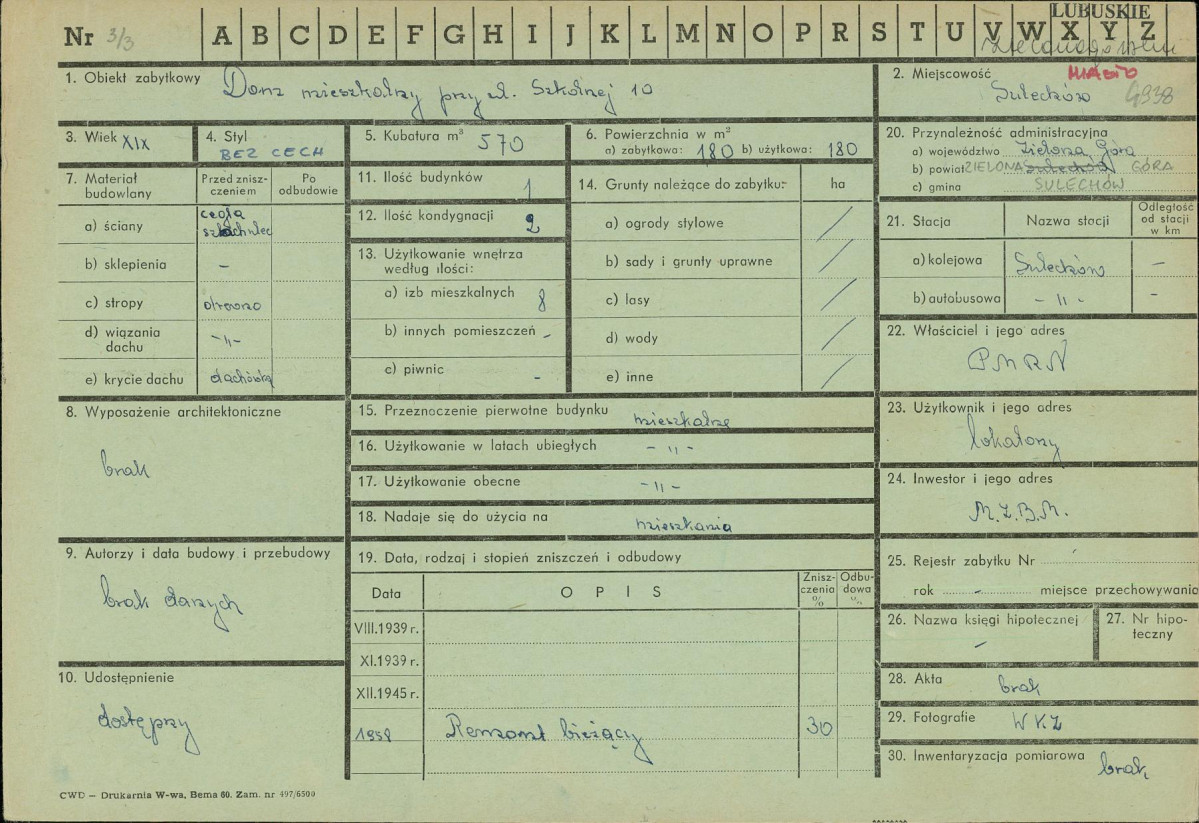 LUBUSKIE
Nr 3/3 A B C D E F G H I J K L M N O P R S T U V W X Y Z
1. Obiekt zabytkowy Dom mieszkalny przy ul. Szkolnej 10
2. Miejscowość MIASTO
Sulechów 4938
3. Wiek XIX
4. Styl
BEZ CECH
5. Kubatura m³ 570
6. Powierzchnia w m²
a) zabytkowa: 180 b) użytkowa: 180
20. Przynależność administracyjna
a) województwo Zielona Góra
b) powiat ZIELONA Sulechów GÓRA
c) gmina SULECHÓW
7. Materiał budowlany
Przed zniszczeniem
Po odbudowie
a) ściany cegła
szachulec
b) sklepienia –
c) stropy drewno
d) wiązania dachu -"-
e) krycie dachu dachówka
8. Wyposażenie architektoniczne
brak
9. Autorzy i data budowy i przebudowy
brak danych
10. Udostępnienie
dostępny
11. Ilość budynków 1
12. Ilość kondygnacji 2
13. Użytkowanie wnętrza
według ilości:
a) izb mieszkalnych 8
b) innych pomieszczeń -
c) piwnic -
14. Grunty należące do zabytku: ha
a) ogrody stylowe /
b) sady i grunty uprawne /
c) lasy /
d) wody /
e) inne /
15. Przeznoczenie pierwotne budynku mieszkalne
16. Użytkowanie w latach ubiegłych -"-
17. Użytkowanie obecne -"-
18. Nadaje się do użycia na mieszkania
19. Data, rodzaj i stopień zniszczeń i odbudowy
Data OPIS Zniszczenia % Odbudowa %
VIII.1939 r.
XI.1939 r.
XII.1945 r.
1958 Remont bieżący 30
21. Stacja Nazwa stacji Odległość od stacji w km
a) kolejowa Sulechów –
b) autobusowa -"- –
22. Właściciel i jego adres
PMRN
23. Użytkownik i jego adres
lokatorzy
24. Inwestor i jego adres
M.Z.B.M.
25. Rejestr zabytku Nr
rok - miejsce przechowywania
26. Nazwa księgi hipotecznej
-
27. Nr hipoteczny
28. Akta brak
29. Fotografie WKZ
30. Inwentaryzacja pomiarowa brak
CWD — Drukarnia W-wa, Bema 60. Zam. nr 497/6500